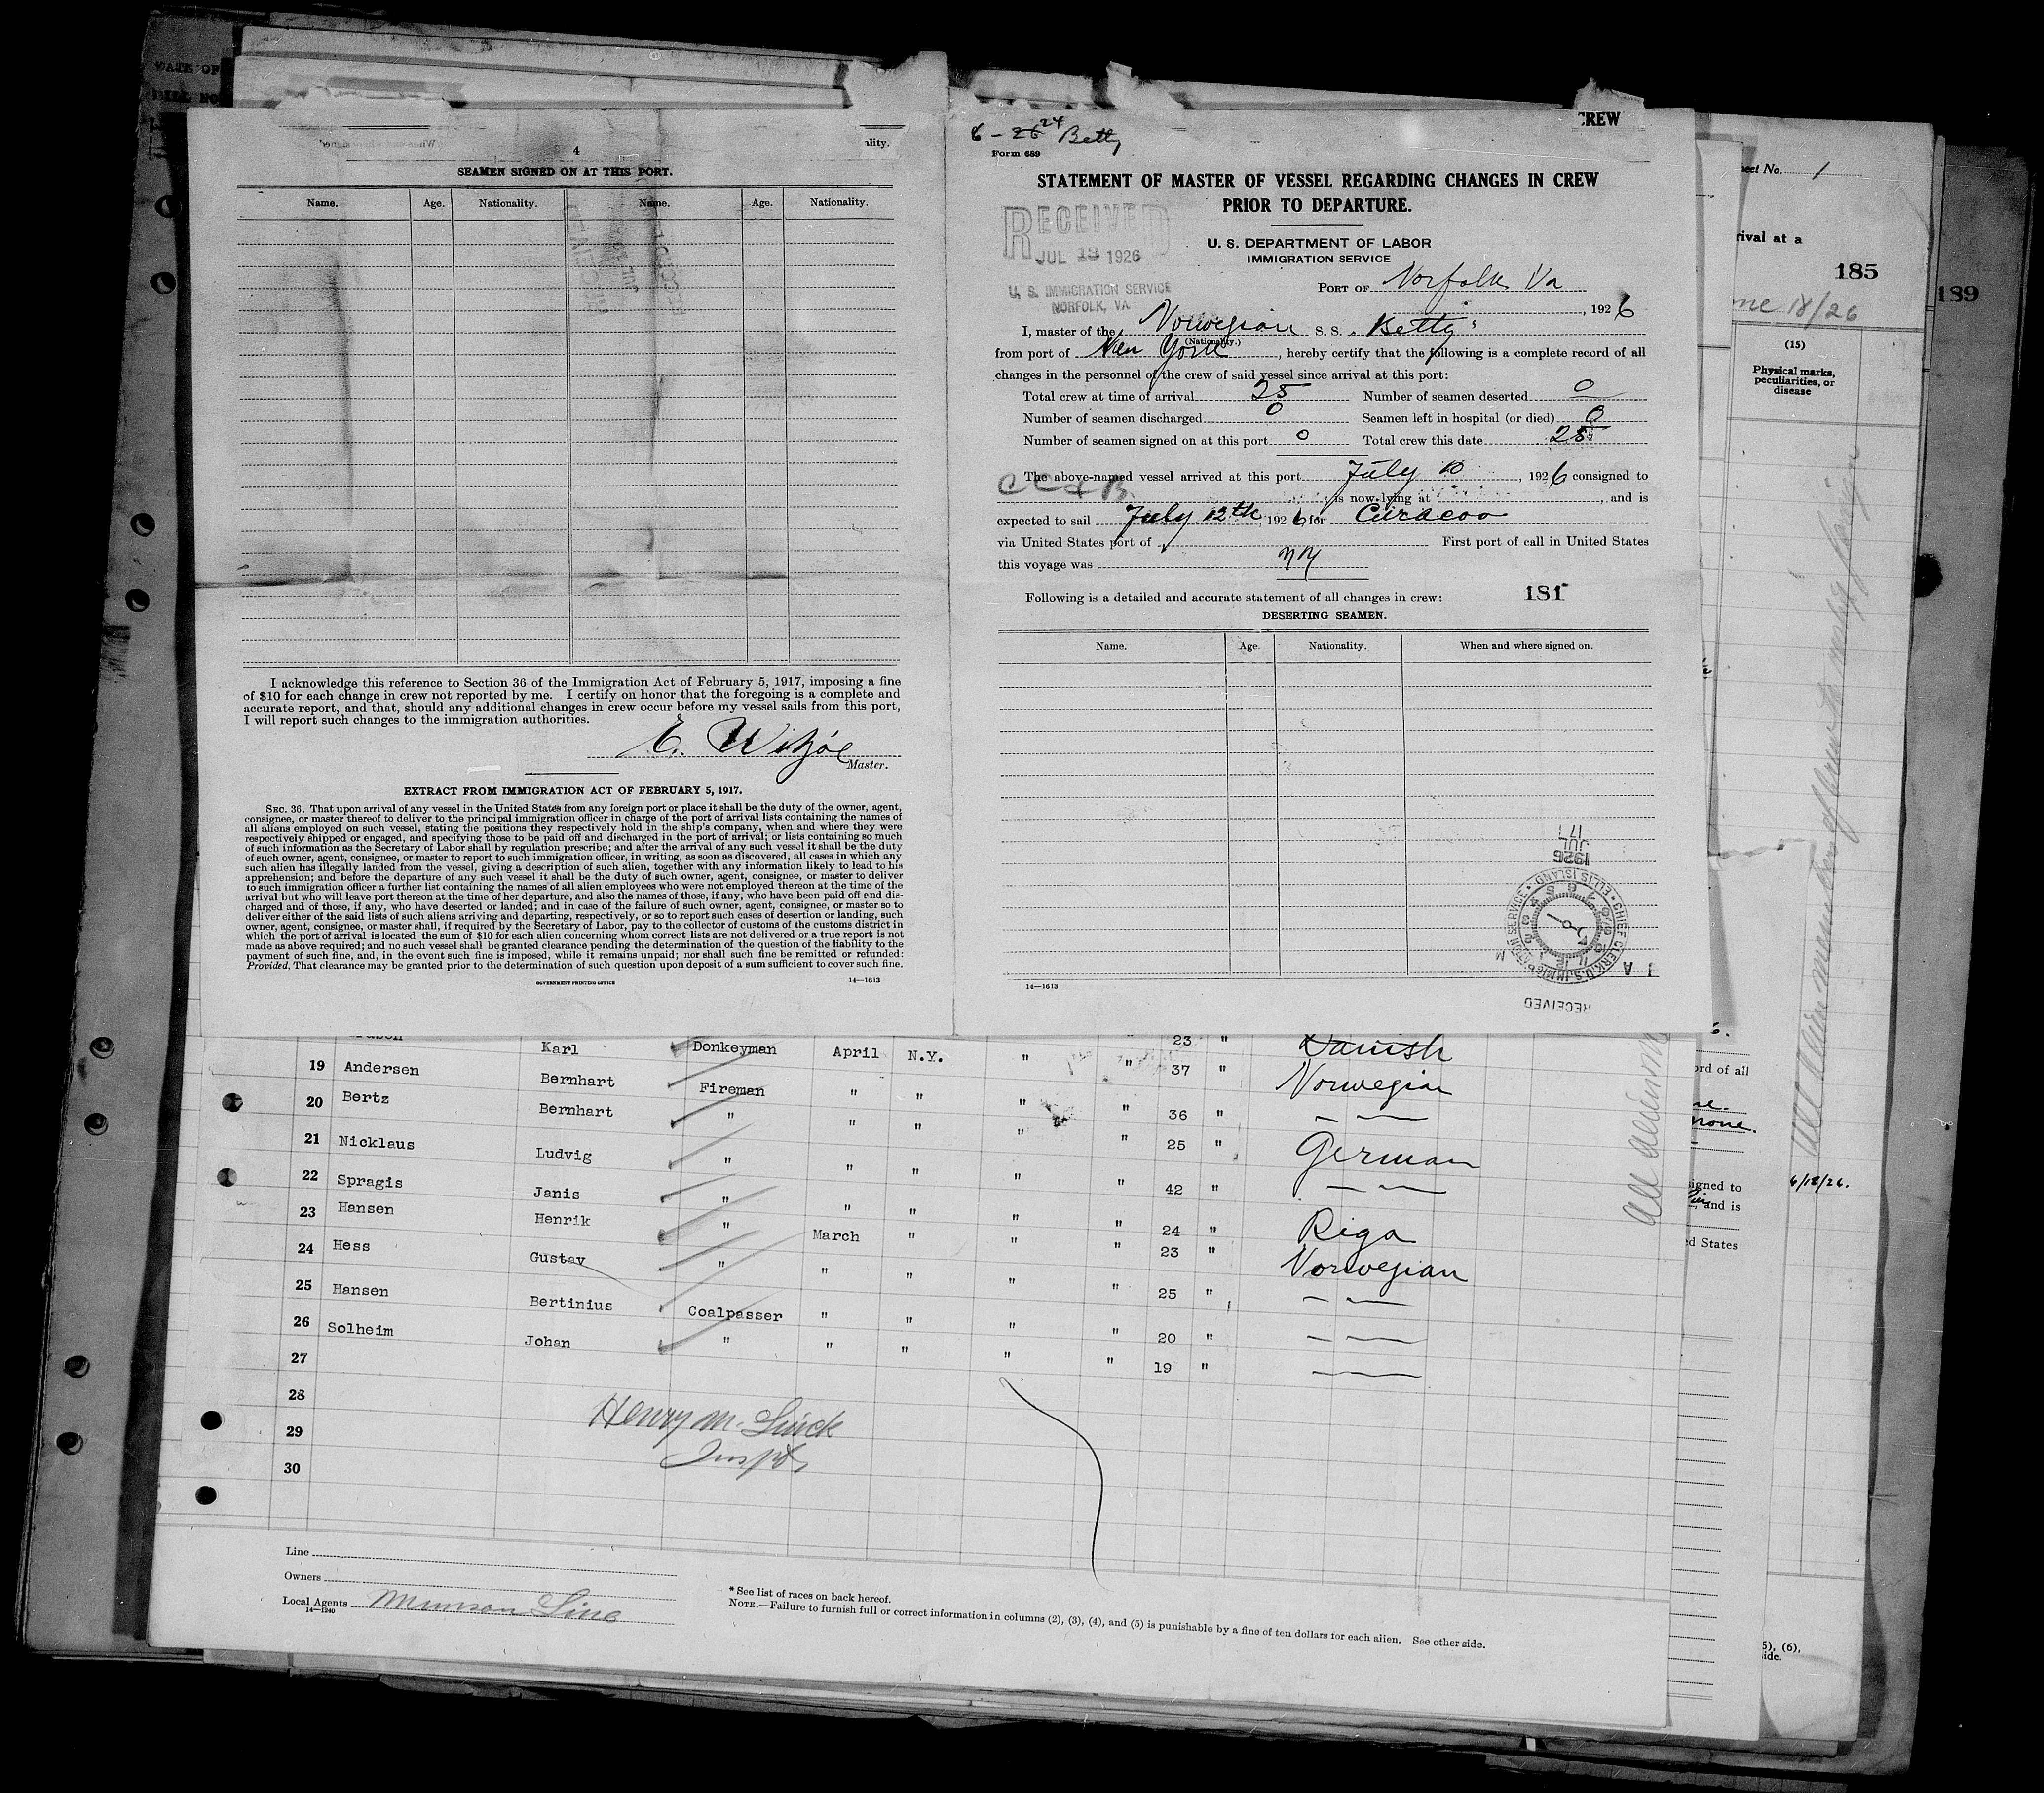 DATE OF
BILL NO
4
ality.
SEAMEN SIGNED ON AT THIS PORT.
Name. Age. Nationality. Name. Age. Nationality.
I acknowledge this reference to Section 36 of the Immigration Act of February 5, 1917, imposing a fine
of $10 for each change in crew not reported by me. I certify on honor that the foregoing is a complete and
accurate report, and that, should any additional changes in crew occur before my vessel sails from this port,
I will report such changes to the immigration authorities.
E.
Master.
EXTRACT FROM IMMIGRATION ACT OF FEBRUARY 5, 1917.
SEC. 36. That upon arrival of any vessel in the United States from any foreign port or place it shall be the duty of the owner, agent,
consignee, or master thereof to deliver to the principal immigration officer in charge of the port of arrival lists containing the names of
all aliens employed on such vessel, stating the positions they respectively hold in the ship's company, when and where they were
respectively shipped or engaged, and specifying those to be paid off and discharged in the port of arrival; or lists containing so much
of such information as the Secretary of Labor shall by regulation prescribe; and after the arrival of any such vessel it shall be the duty
of such owner, agent, consignee, or master to report to such immigration officer, in writing, as soon as discovered, all cases in which any
such alien has illegally landed from the vessel, giving a description of such alien, together with any information likely to lead to his
apprehension; and before the departure of any such vessel it shall be the duty of such owner, agent, consignee, or master to deliver
to such immigration officer a further list containing the names of all alien employees who were not employed thereon at the time of the
arrival but who will leave port thereon at the time of her departure, and also the names of those, if any, who have been paid off and dis-
charged and of those, if any, who have deserted or landed; and in case of the failure of such owner, agent, consignee, or master so to
deliver either of the said lists of such aliens arriving and departing, respectively, or so to report such cases of desertion or landing, such
owner, agent, consignee, or master shall, if required by the Secretary of Labor, pay to the collector of customs of the customs district in
which the port of arrival is located the sum of $10 for each alien concerning whom correct lists are not delivered or a true report is not
made as above required; and no such vessel shall be granted clearance pending the determination of the question of the liability to the
payment of such fine, and, in the event such fine is imposed, while it remains unpaid; nor shall such fine be remitted or refunded:
Provided, That clearance may be granted prior to the determination of such question upon deposit of a sum sufficient to cover such fine.
GOVERNMENT PRINTING OFFICE 14—1613
CREW
6 - 26 24 Betty
Form 689
STATEMENT OF MASTER OF VESSEL REGARDING CHANGES IN CREW
PRIOR TO DEPARTURE.
RECEIVED
JUL 13 1926
U. S. IMMIGRATION SERVICE
NORFOLK, VA.
U. S. DEPARTMENT OF LABOR
IMMIGRATION SERVICE
PORT OF Norfolk Va
, 1926
I, master of the Norwegian S. S. "Betty"
(Nationality.)
from port of New York, hereby certify that the following is a complete record of all
changes in the personnel of the crew of said vessel since arrival at this port:
Total crew at time of arrival 25 Number of seamen deserted 0
Number of seamen discharged 0 Seamen left in hospital (or died) 0
Number of seamen signed on at this port 0 Total crew this date 25
The above-named vessel arrived at this port July 10, 1926 consigned to
is now lying at , and is
expected to sail July 12th, 1926, for Curacoo
via United States port of First port of call in United States
this voyage was NY
Following is a detailed and accurate statement of all changes in crew: 181
DESERTING SEAMEN.
Name. Age. Nationality. When and where signed on.
JUL 17
1926
CHIEF CLERK, U.S. IMMIGRATION SERVICE · ELLIS ISLAND ·
RECEIVED
14—1613
Karl Donkeyman April N.Y. " " 23 " Danish
19 Andersen Bernhart Fireman " " " " 37 " Norwegian
20 Bertz Bernhart " " " " " 36 " — —
21 Nicklaus Ludvig " " " " " 25 " German
22 Spragis Janis " " " " " 42 " — —
23 Hansen Henrik " March " " " 24 " Riga
24 Hess Gustav " " " " " 23 " Norwegian
25 Hansen Bertinius Coalpasser " " " " 25 " — —
26 Solheim Johan " " " " " 20 " — —
27 19 " — —
28
29
30
Henry M.
Insptr
Line
Owners
Local Agents Munson Line
14—1240
* See list of races on back hereof.
NOTE.—Failure to furnish full or correct information in columns (2), (3), (4), and (5) is punishable by a fine of ten dollars for each alien. See other side.
eet No. 1
rival at a
185
189
ne 18/26
(15)
Physical marks,
peculiarities, or
disease
ord of all
none.
signed to
6/18/26.
, and is
ed States
5), (6),
ide.